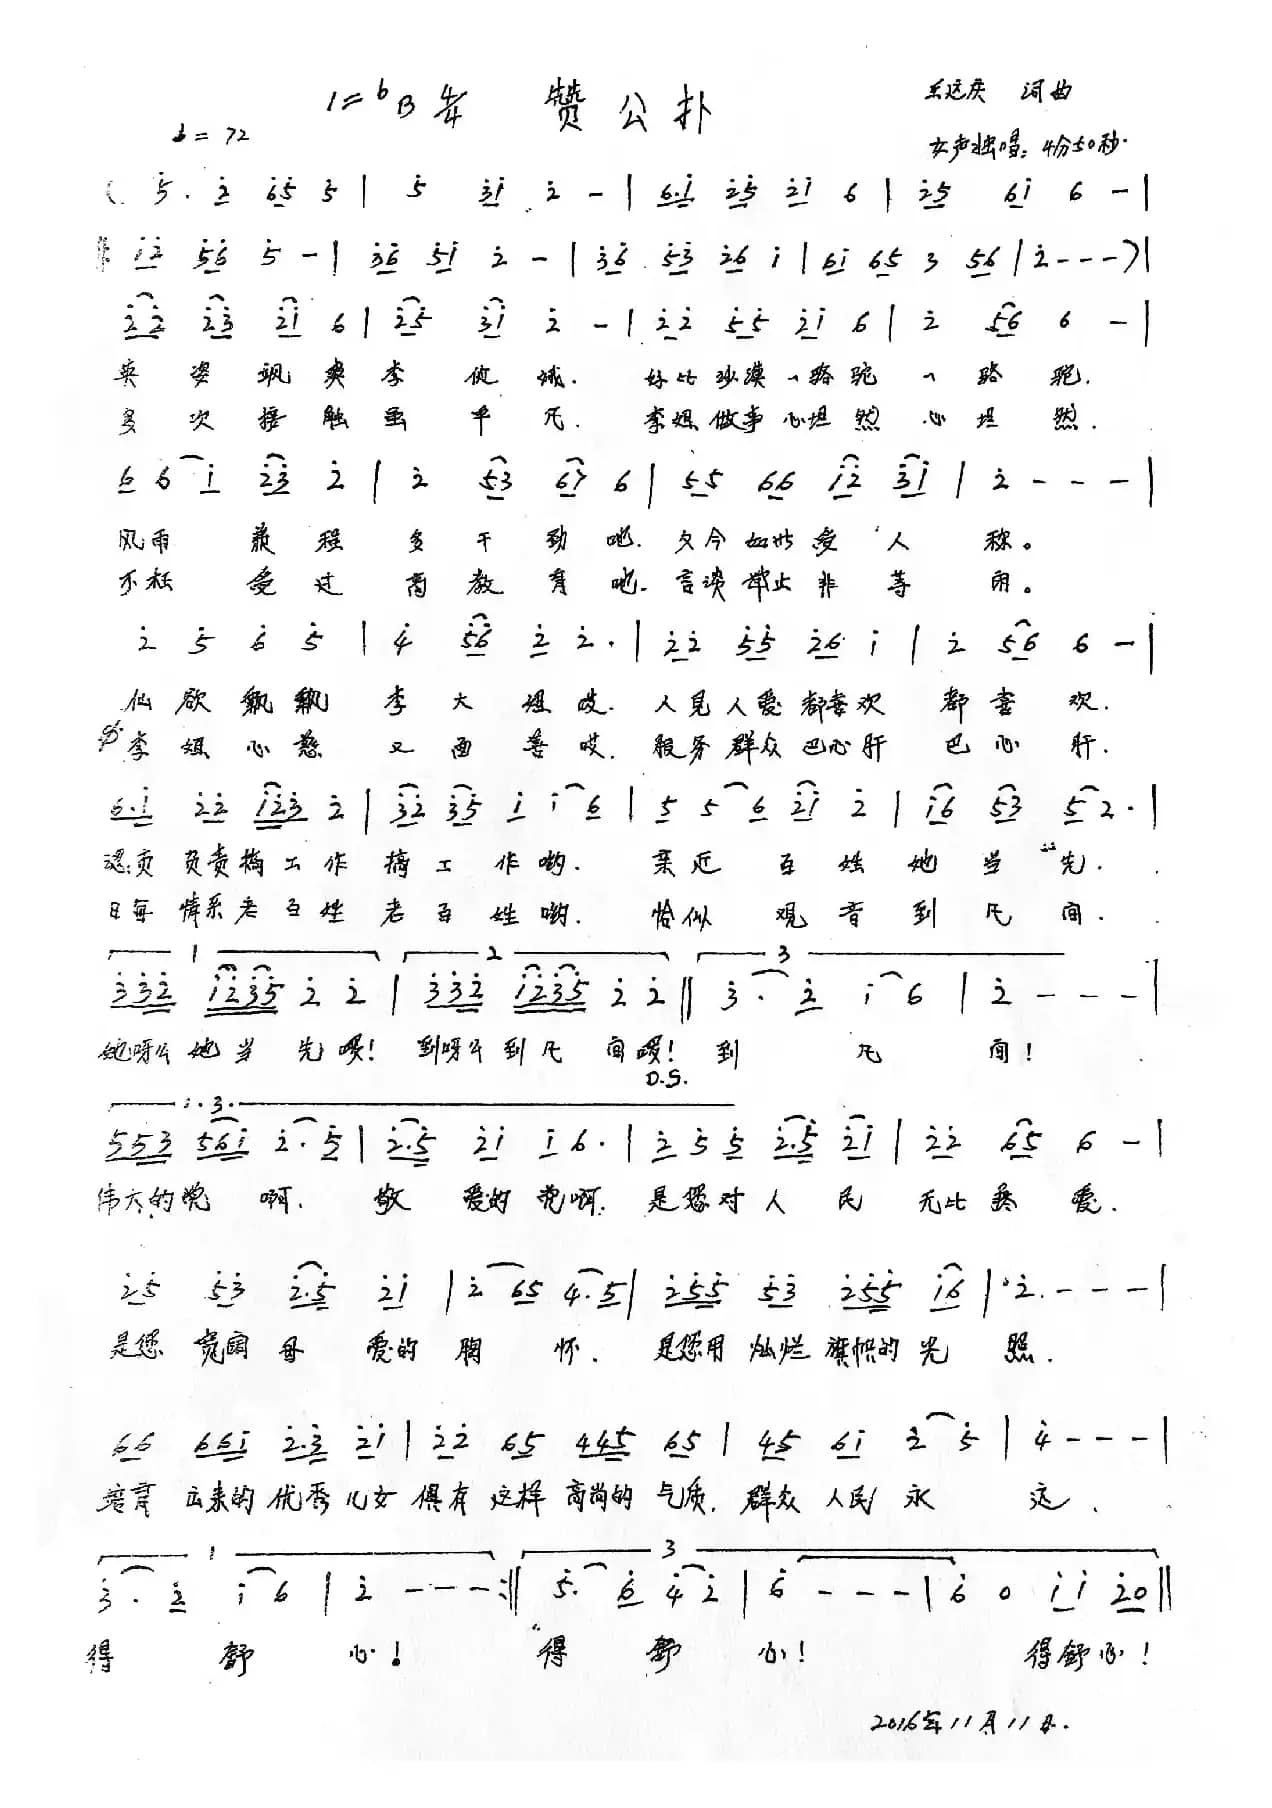 1=bB 4/4 赞公扑
远庆 词曲
♩=72
女声独唱：4分50秒.
( 5. 2 65 3 | 5 31 2 - | 6.1 25 21 6 | 25 61 6 - |
12 56 5 - | 36 51 2 - | 36 53 26 1 | 61 65 3 56 | 2 - - - ) |
22 23 21 6 | 25 31 2 - | 22 55 21 6 | 2 56 6 - |
英姿飒爽李 好比沙漠一骆驼一骆驼.
多次接触虽平凡. 李姐做事心坦然心坦然.
6 6 1 23 2 | 2 53 6 6 | 55 66 12 31 | 2 - - - |
风雨兼程多干劲吔. 夕今如此爱人称。
不枉受过高教育吔. 言谈举止非等闲。
2 5 6 5 | 4 56 2 2. | 22 55 26 1 | 2 56 6 - |
仙欲飘飘李大姐哎. 人见人爱都喜欢都喜欢.
李姐心慈又面善哎. 服务群众巴心肝巴心肝.
6.1 22 123 2 | 32 35 1 1 6 | 5 5 6 21 2 | 16 53 5 2. |
认真负责搞工作搞工作哟. 亲近百姓她当先.
日每情系老百姓老百姓哟. 恰似观音到凡间.
1 2 3
332 1235 2 2 | 332 1235 2 2 || 3. 2 1 6 | 2 - - - |
她呀么她当先嗳! 到呀么到凡间嗳! 到凡间!
D.S.
1.3.
553 561 2.5 | 2.5 21 1 6. | 2 5 5 2.5 21 | 22 65 6 - |
伟大的党啊. 敬爱的党啊. 是您对人民无比热爱.
25 53 2.5 21 | 2 65 4.5 | 255 53 2.55 16 | 2. - - - |
是您宽阔母爱的胸怀. 是您用灿烂旗帜的光照.
66 661 2.3 21 | 22 65 445 65 | 45 61 2 5 | 4 - - - |
培育出来的优秀儿女俱有这样高尚的气质. 群众人民永远.
1 3
3. 2 1 6 | 2 - - - :|| 5. 6 4 2 | 6 - - - | 6 0 1 1 20 ||
得舒心! 得舒心! 得舒心!
2016年11月11日.